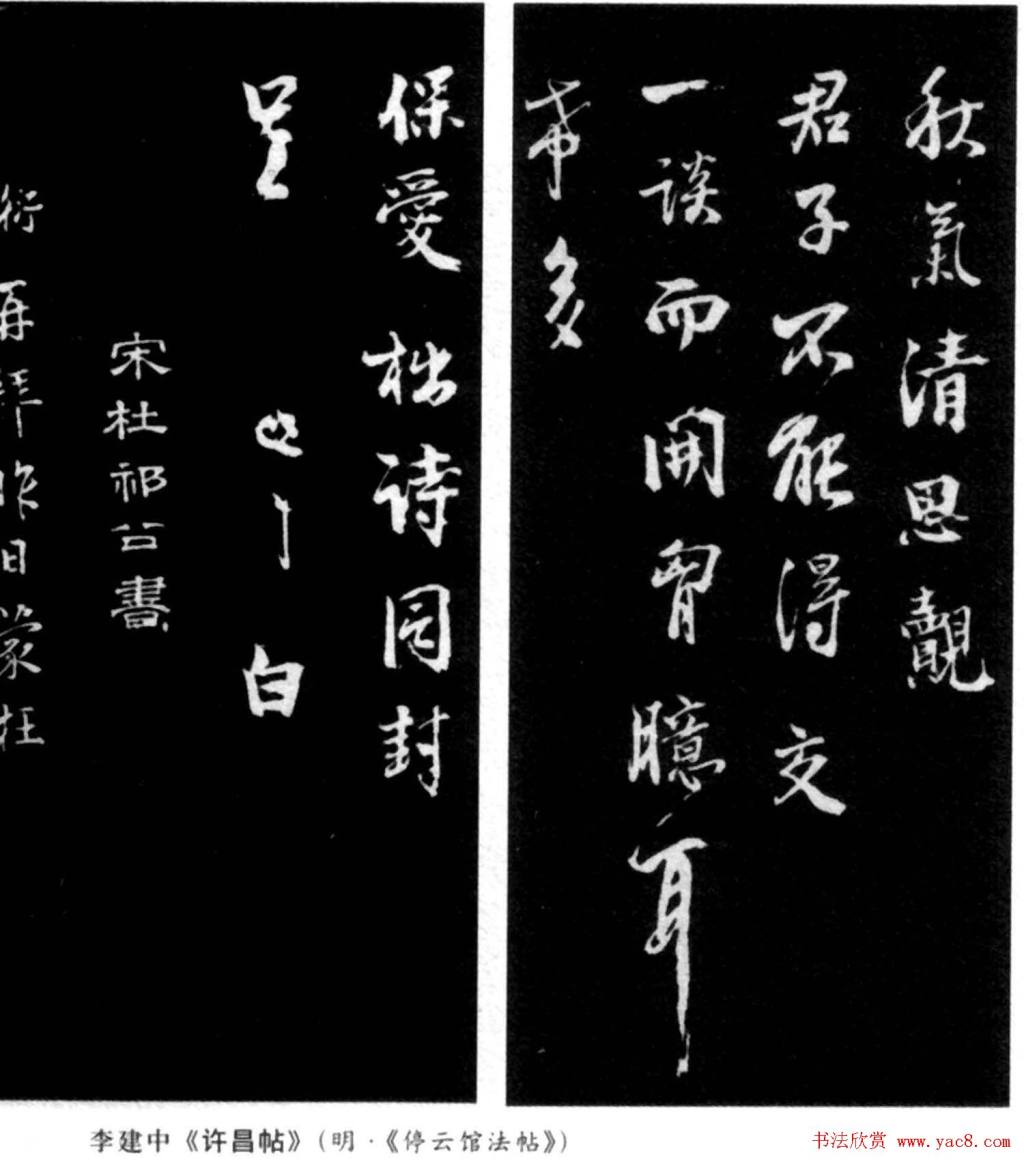 秋氣清思覿
君子不能得交
一談而開胷臆耳
希多
保愛拙詩同封
呈建中白
宋杜祁公書
衍再拜昨日蒙枉
李建中《许昌帖》(明·《停云馆法帖》)
书法欣赏 www.yac8.com